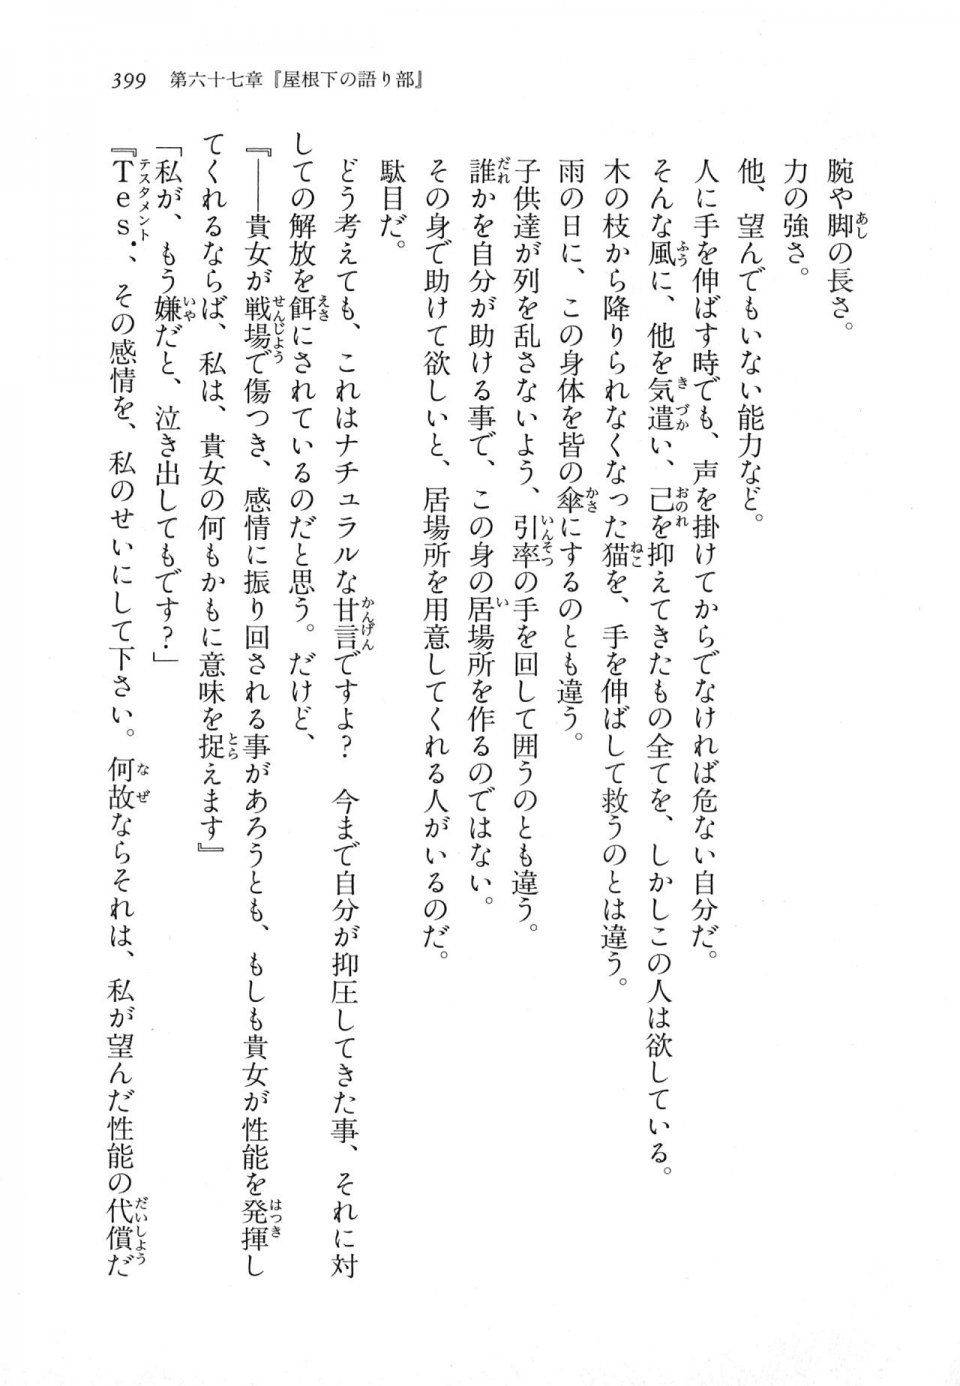 399　第六十七章『屋根下の語り部』
腕や脚の長さ。
力の強さ。
他、望んでもいない能力など。
人に手を伸ばす時でも、声を掛けてからでなければ危ない自分だ。
そんな風に、他を気遣い、己を抑えてきたもの全てを、しかしこの人は欲している。
木の枝から降りられなくなった猫を、手を伸ばして救うのとは違う。
雨の日に、この身体を皆の傘にするのとも違う。
子供達が列を乱さないよう、引率の手を回して囲うのとも違う。
誰かを自分が助ける事で、この身の居場所を作るのではない。
その身で助けて欲しいと、居場所を用意してくれる人がいるのだ。
駄目だ。
どう考えても、これはナチュラルな甘言ですよ？　今まで自分が抑圧してきた事、それに対
しての解放を餌にされているのだと思う。だけど、
『――貴女が戦場で傷つき、感情に振り回される事があろうとも、もしも貴女が性能を発揮し
てくれるならば、私は、貴女の何もかもに意味を捉えます』
「私が、もう嫌だと、泣き出してもです？」
『Ｔｅｓ．、その感情を、私のせいにして下さい。何故ならそれは、私が望んだ性能の代償だ